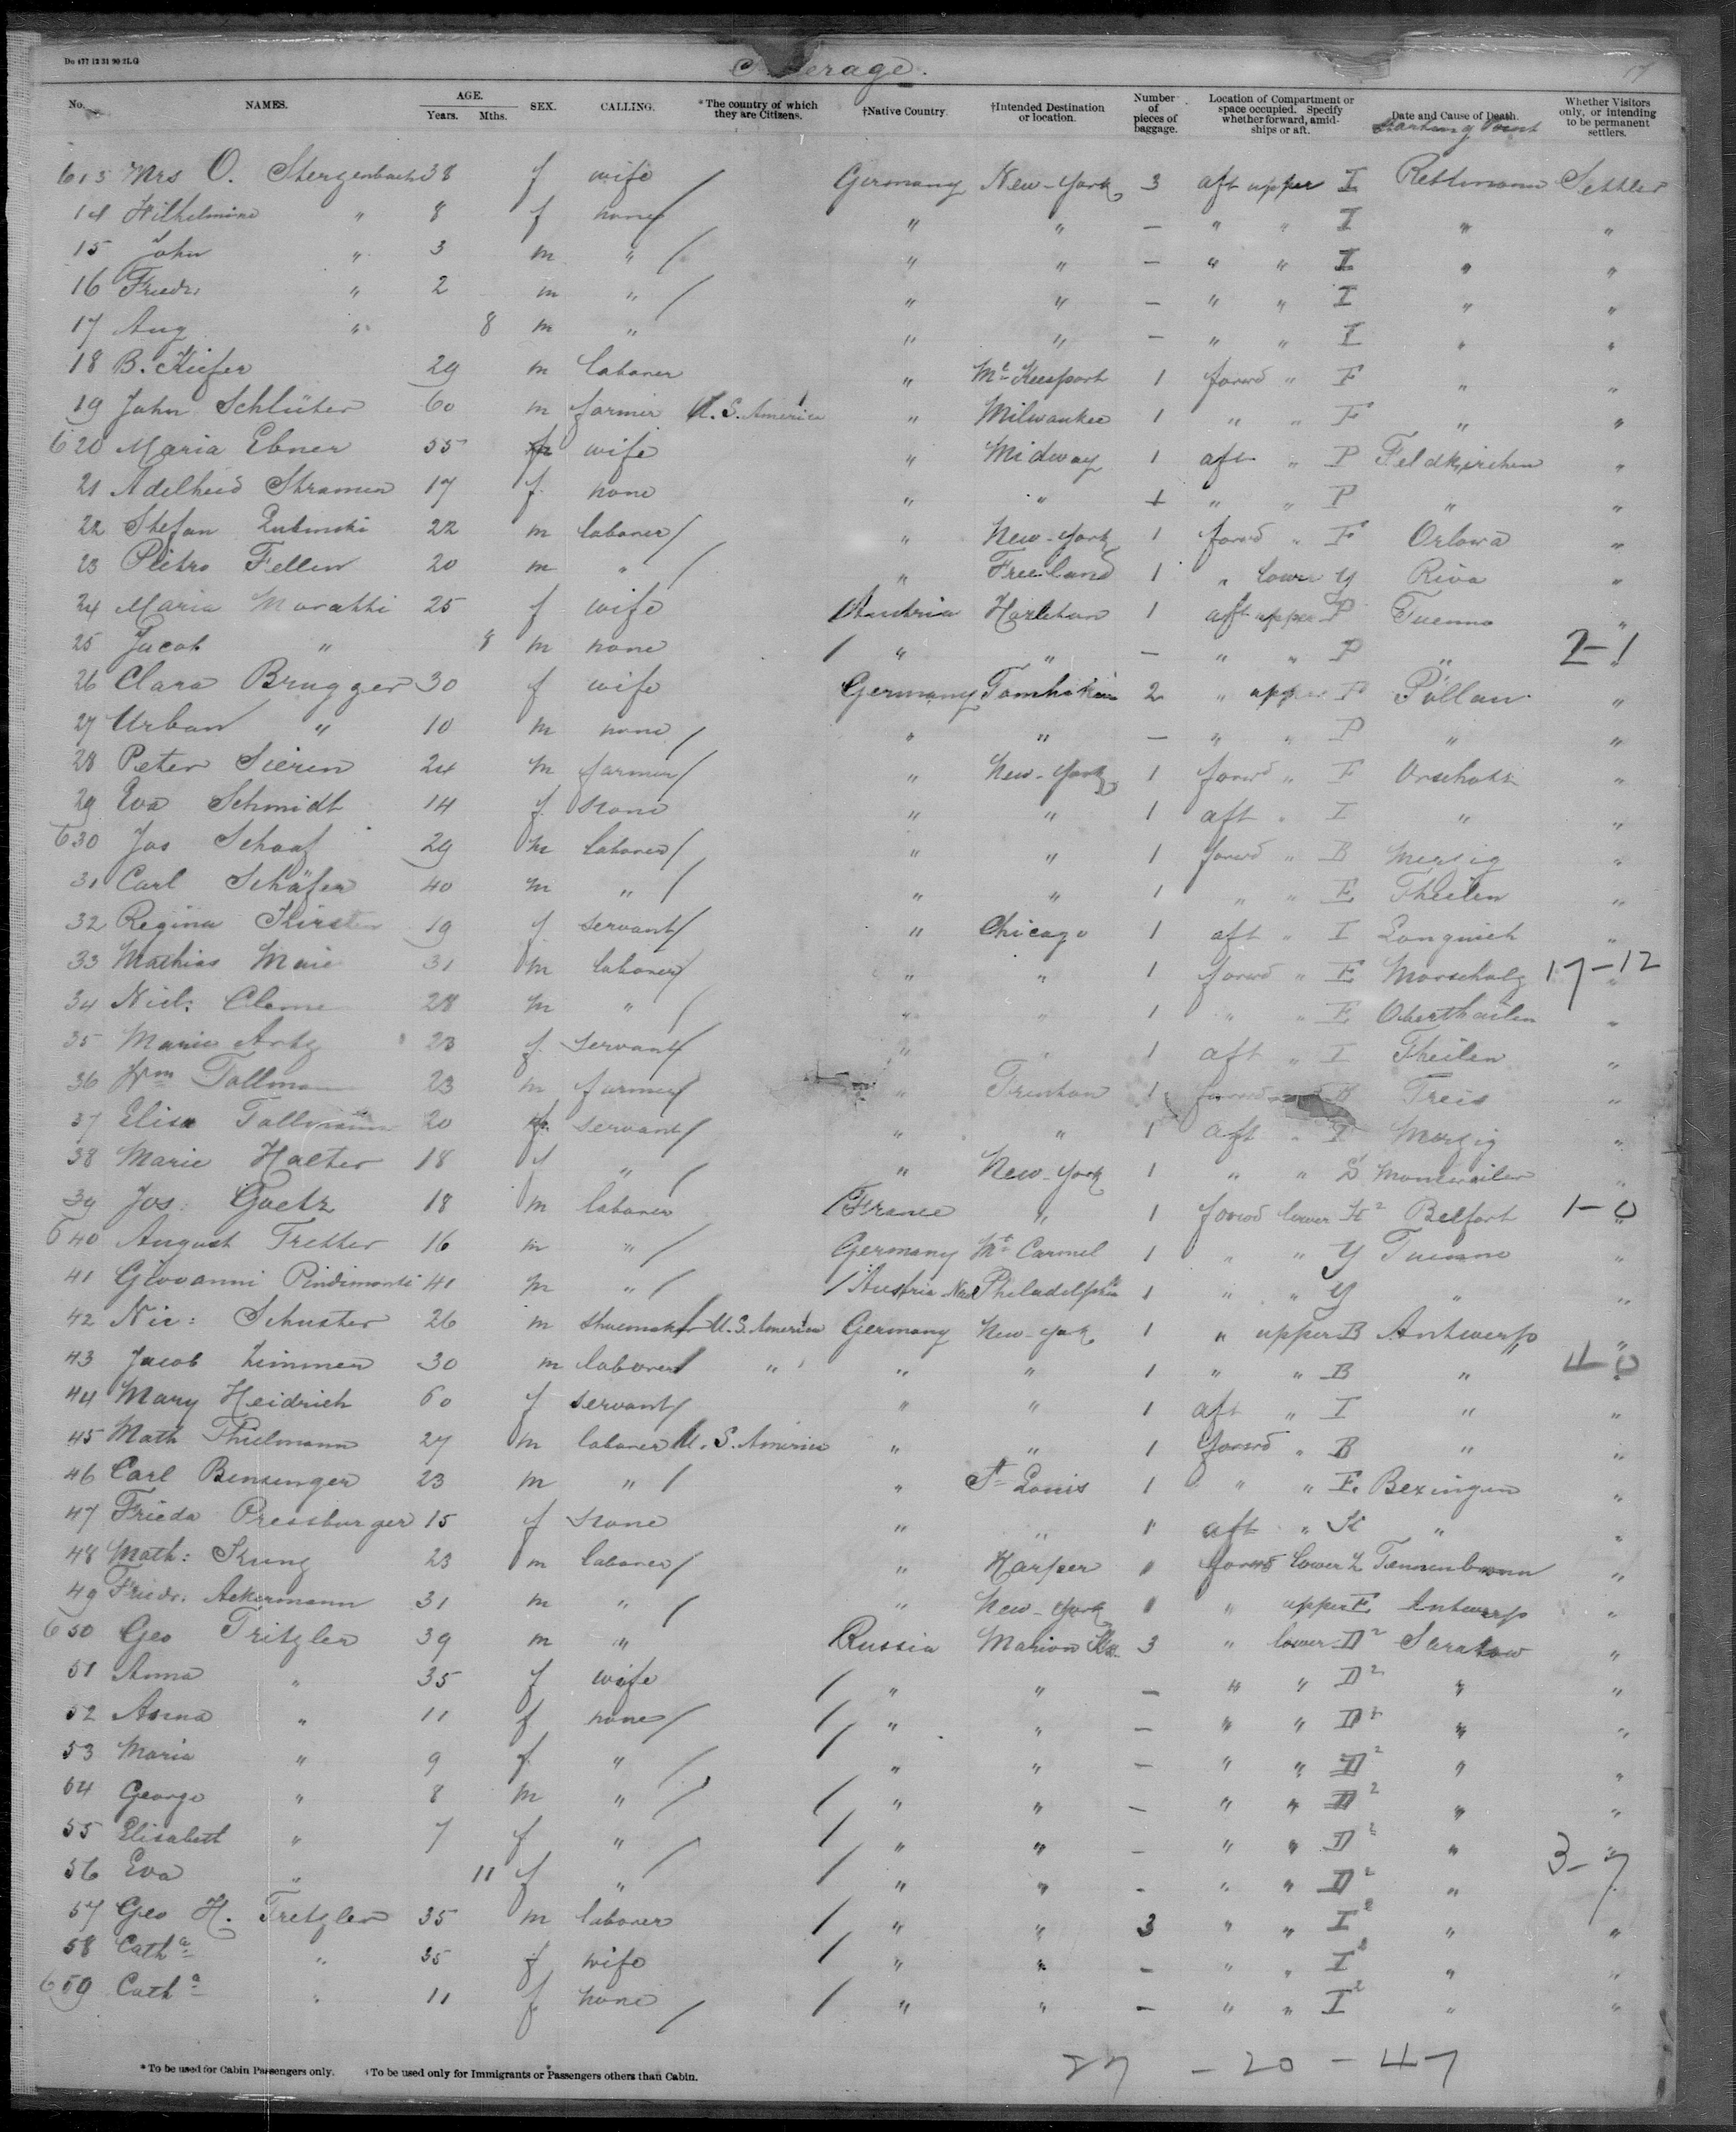 Do 477 12 31 90 2LG
Steerage. 17
No. NAMES. AGE. Years. Mths. SEX. CALLING. *The country of which they are Citizens. †Native Country. †Intended Destination or location. Number of pieces of baggage. Location of Compartment or space occupied. Specify whether forward, amidships or aft. Date and Cause of Death. Starting Point Whether Visitors only, or intending to be permanent settlers.
613 Mrs O. 38 f wife / Germany New-York 3 aft upper I Settler
14 Wilhelmine " 8 f none / " " — " " I " "
15 John " 3 m " / " " — " " I " "
16 Friedr: " 2 m " / " " — " " I " "
17 Aug " 8 m " " " — " " I " "
18 B. Kiefer 29 m laborer " Mc Keesport 1 forwd " F " "
19 John Schlüter 60 m farmer U.S. America " Milwaukee 1 " " F " "
620 Maria Ebner 55 f wife " Midway 1 aft " P Feldkirchen "
21 Adelheid 17 f. none " " 1 " " P " "
22 Stefan 22 m laborer / " New-York 1 forwd " F Orlowa "
23 Pietro Fellin 20 m " / " Freeland 1 " lower Y Riva "
24 Maria Moratti 25 f wife / Austria Hazleton 1 aft upper P Tuenno "
25 Jacob " 8 m none / " " — " " P " " 2-1
26 Clara Brugger 30 f wife Germany 2 " upper P Pöllau "
27 Urban " 10 m none / " " — " " P " "
28 Peter Sieren 24 m farmer / " New-York 1 forwd " F Orscholz "
29 Eva Schmidt 14 f. none " " 1 aft " I " "
630 Jos Schaaf 29 m laborer / " " 1 forwd " B Merzig "
31 Carl Schäfer 40 m " / " " 1 " " E Theilen "
32 Regina Kirsten 19 f servant / " Chicago 1 aft " I Longuich "
33 Mathias Maie 31 m laborer / " " 1 forwd " E Morscholz " 17-12
34 Nicl: 28 m " / " " 1 " " E Oberthailen "
35 Marie Artz 23 f. servant / " " 1 aft " I Theilen "
36 Wm Tallmann 23 m farmer / " Trenton 1 forwd B Treis "
37 Elise Tallmann 20 f. servant / " " 1 aft " I Merzig "
38 Marie Halter 18 f " / " New-York 1 " " "
39 Jos: Goetz 18 m laborer / France " 1 forwd lower K2 Belfort " 1-0
640 August Tretter 16 m " / Germany Mt Carmel 1 " " Y Tuenno "
41 Giovanni Pindimonti 41 m " / / Austria Philadelphia 1 " " Y " "
42 Nic: Schuster 26 m shoemaker / U.S. America Germany New-York 1 " upper B Antwerp "
43 Jacob Zimmer 30 m laborer / " " " 1 " " B " " 4-0
44 Mary Heidrich 60 f servant / " " 1 aft " I " "
45 Math Thielmann 27 m laborer U.S. America " " 1 forwd " B " "
46 Carl Bensinger 23 m " / " St Louis 1 " " E Bezingen "
47 Frieda Pressburger 15 f none " " 1 aft " K " "
48 Math: Kung 23 m laborer / " Harper 1 forwd lower L Tannenbronn "
49 Friedr: Ackermann 31 m " / " New-York 1 " upper E Antwerp "
650 Geo Tritzler 39 m " Russia Marion Ks. 3 " lower D2 Saratow "
51 Anna " 35 f wife / " " — " " D2 " "
52 Anna " 11 f none / / " " — " " D2 " "
53 Maria " 9 f. " / " " — " " D2 " "
54 George " 8 m " / / " " — " " D2 " "
55 Elisabeth " 7 f " / / " " — " " D2 " "
56 Eva " 11 f " / " " — " " D2 " " 3-7
57 Geo H. Tretzler 35 m laborer / " " 3 " " I2 " "
58 Catha " 35 f wife / " " — " " I2 " "
659 Catha " 11 f none / / " " — " " I2 " "
27 - 20 - 47
*To be used for Cabin Passengers only. †To be used only for Immigrants or Passengers others than Cabin.